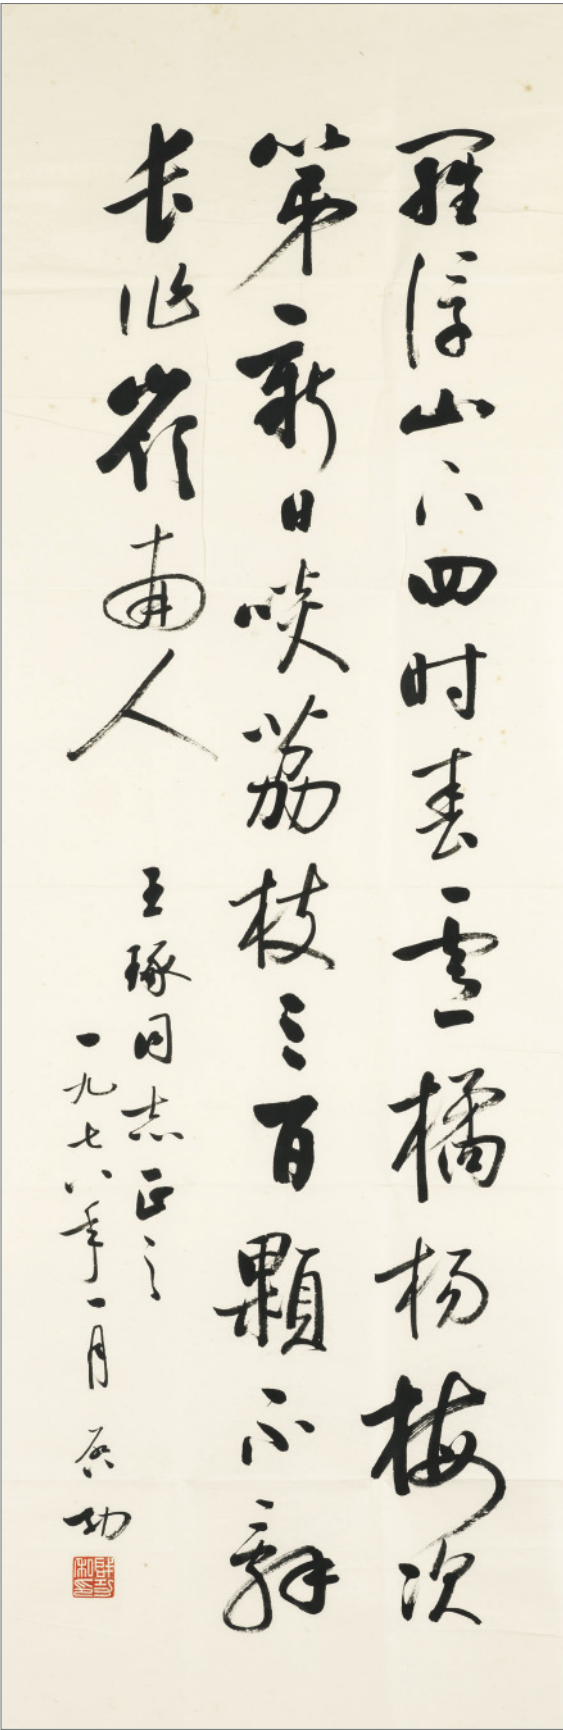 羅浮山下四时春盧橘杨梅次
第新日啖荔枝三百顆不辭
长作嶺南人
王琢同志正之
一九七八年一月 启功